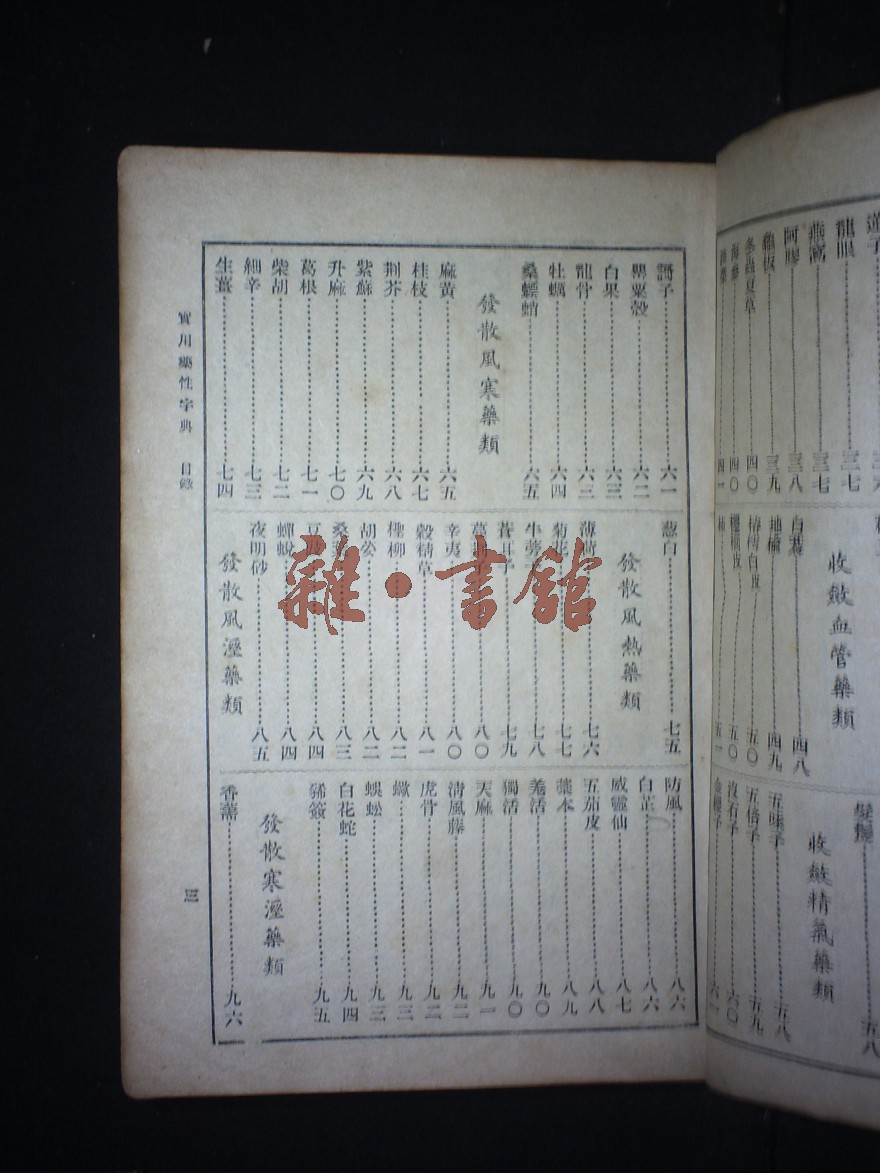 龍眼 三七
燕窩 三七
阿膠 三八
龜板 三九
冬蟲夏草 四〇
四〇
四一
收斂血管藥類
四八
地榆 四九
椿樗白皮 五〇
五〇
五一
五八
收斂精氣藥類
五味子 五八
五倍子 五九
沒石子 六〇
金櫻子 六一
訶子 六一
罌粟殼 六二
白果 六三
龍骨 六三
牡蠣 六四
桑螵蛸 六五
發散風寒藥類
麻黃 六五
桂枝 六七
荆芥 六八
紫蘇 六九
升麻 七〇
葛根 七一
柴胡 七二
細辛 七三
生薑 七四
葱白 七五
發散風熱藥類
薄荷 七六
菊花 七七
牛蒡子 七八
蒼耳子 七九
蔓荊子 八〇
辛夷 八〇
穀精草 八一
檉柳 八二
胡荽 八二
桑 八三
豆豉 八四
蟬蛻 八四
夜明砂 八五
發散風溼藥類
防風 八六
白芷 八六
威靈仙 八七
五茄皮 八八
藁本 八九
羗活 九〇
獨活 九〇
天麻 九一
清風藤 九二
虎骨 九二
蠍 九三
蜈蚣 九三
白花蛇 九四
豨薟 九五
發散寒溼藥類
香薷 九六
實用藥性字典 目錄
三
雜·書館